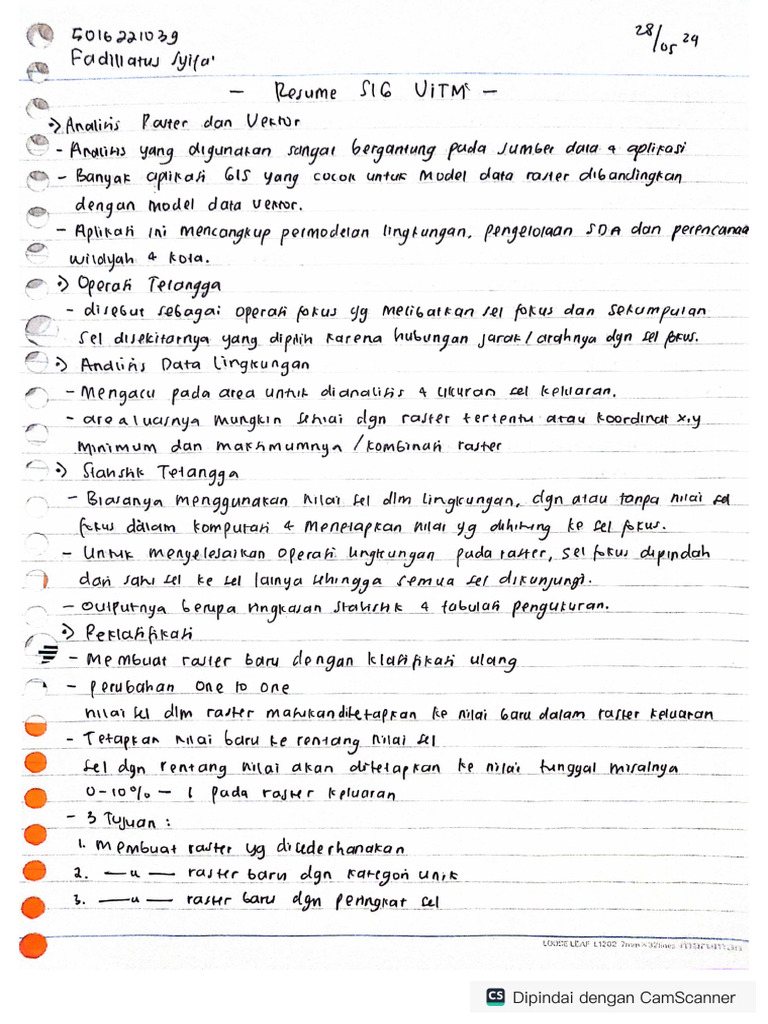 5016221039
28/05 24
Fadillatus Syifa'
- Resume SIG UiTM -
•> Analisis Raster dan Vektor
- Analisis yang digunakan sangat bergantung pada sumber data & aplikasi
- Banyak aplikasi GIS yang cocok untuk model data raster dibandingkan
dengan model data vektor.
- Aplikasi ini mencangkup permodelan lingkungan, pengelolaan SDA dan perencanaa
wilayah & kota.
•> Operasi Tetangga
- disebut sebagai operasi fokus yg melibatkan sel fokus dan sekumpulan
sel disekitarnya yang dipilih karena hubungan jarak/arahnya dgn sel fokus.
•> Analisis Data Lingkungan
- Mengacu pada area untuk dianalisis & ukuran sel keluaran.
- area luasnya mungkin sesuai dgn raster tertentu atau koordinat x,y
minimum dan maksimumnya / kombinasi raster
•> Statistik Tetangga
- Biasanya menggunakan nilai sel dlm lingkungan, dgn atau tanpa nilai sel
fokus dalam komputasi & menetapkan nilai yg dihitung ke sel fokus.
- Untuk menyelesaikan operasi lingkungan pada raster, sel fokus dipindah
dari satu sel ke sel lainya sehingga semua sel dikunjungi.
- Outputnya berupa ringkasan statistik & tabulasi pengukuran.
•> Reklasifikasi
- Membuat raster baru dengan klasifikasi ulang
- perubahan one to one
nilai sel dlm raster masukan ditetapkan ke nilai baru dalam raster keluaran
- Tetapkan nilai baru ke rentang nilai sel
sel dgn rentang nilai akan ditetapkan ke nilai tunggal misalnya
0-10% - 1 pada raster keluaran
- 3 Tujuan :
1. membuat raster yg disederhanakan
2. —u— raster baru dgn kategori unik
3. —u— raster baru dgn peringkat sel
LOOSE LEAF L1202 7mm×32lines
CS Dipindai dengan CamScanner